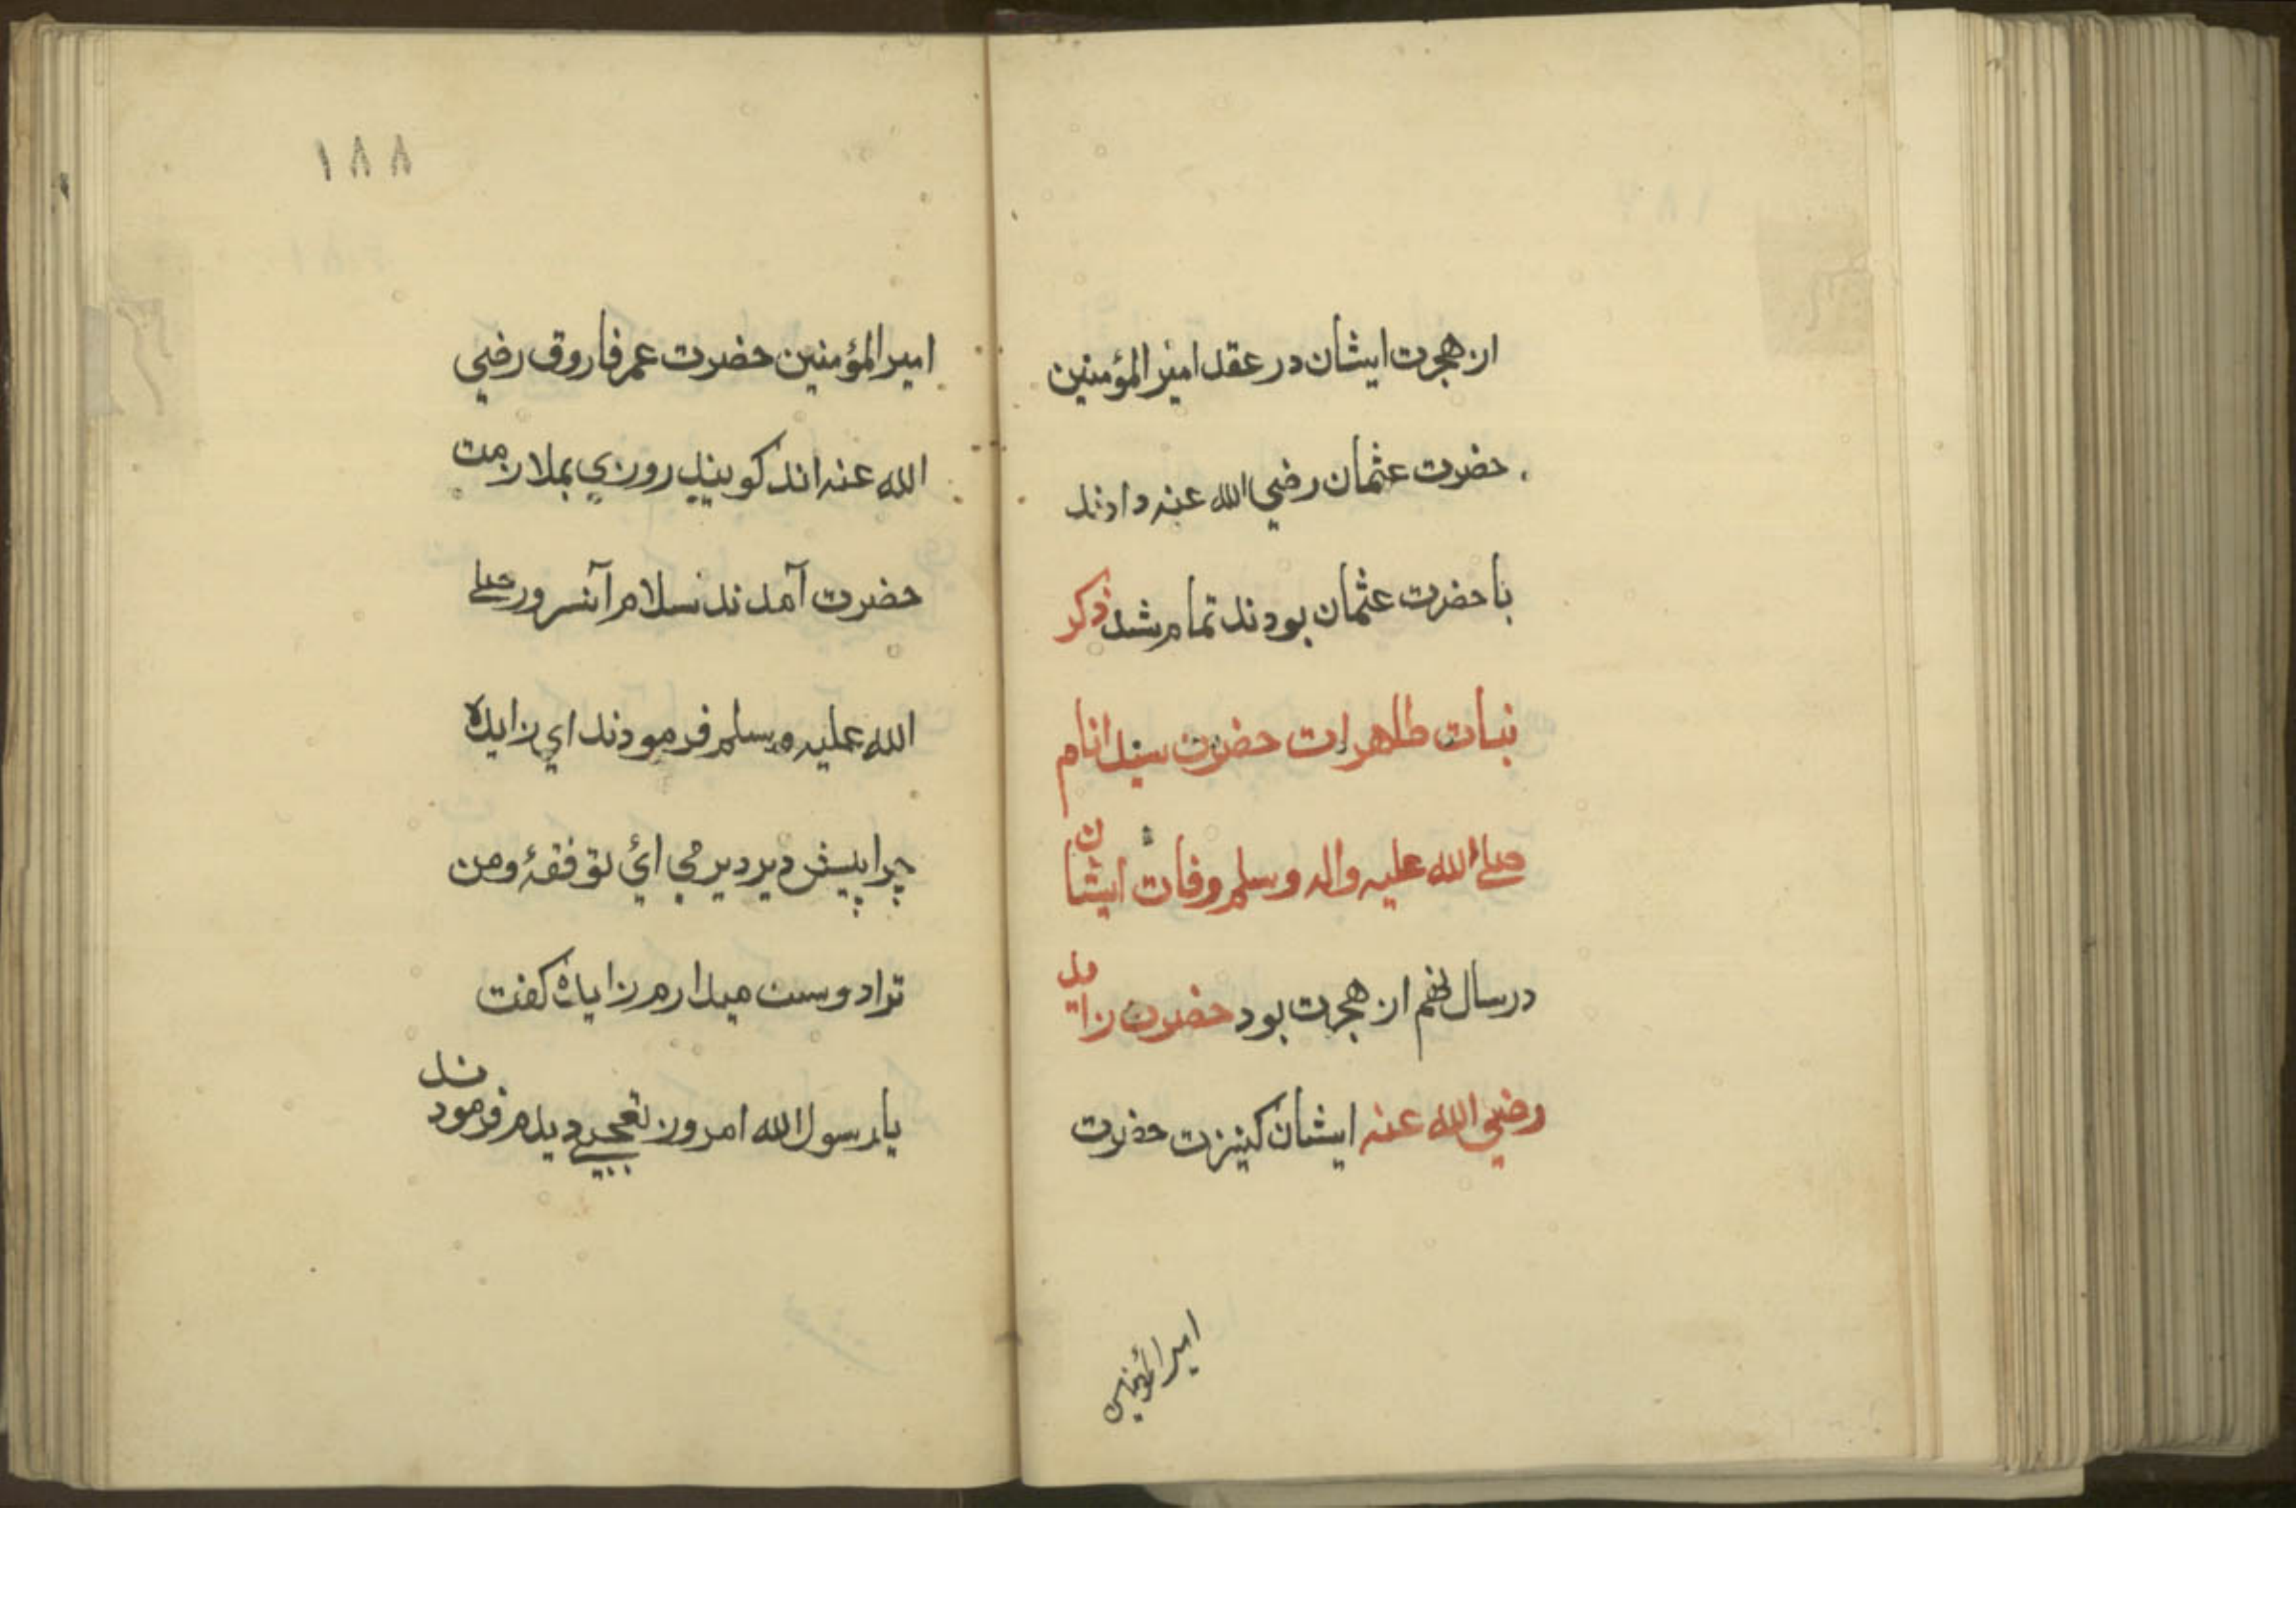 از هجرت ایشان در عقد امیر المؤمنین
حضرت عثمان رضي الله عنه دادند
با حضرت عثمان بودند تمام شد ذکر
بنات طاهرات حضرت سید انام
صلے الله علیه واله وسلم وفات ایشان
در سال نهم از هجرت بود حضرت زایده
رضي الله عنه ایشان کنیزت حضرت
امیر المؤمنین
١٨٨
امیر المؤمنین حضرت عمر فاروق رضي
الله عنه اند کویند روزي بملازمت
حضرت آمدند بسلام آنسرور صلے
الله علیه وسلم فرمودند اي زایده
چرا پیش دیر دیر مي ائي تو فقهٔ ومن
ترا دوست میدارم زایده کفت
یا رسول الله امروز تعجبے دیدم فرمودند